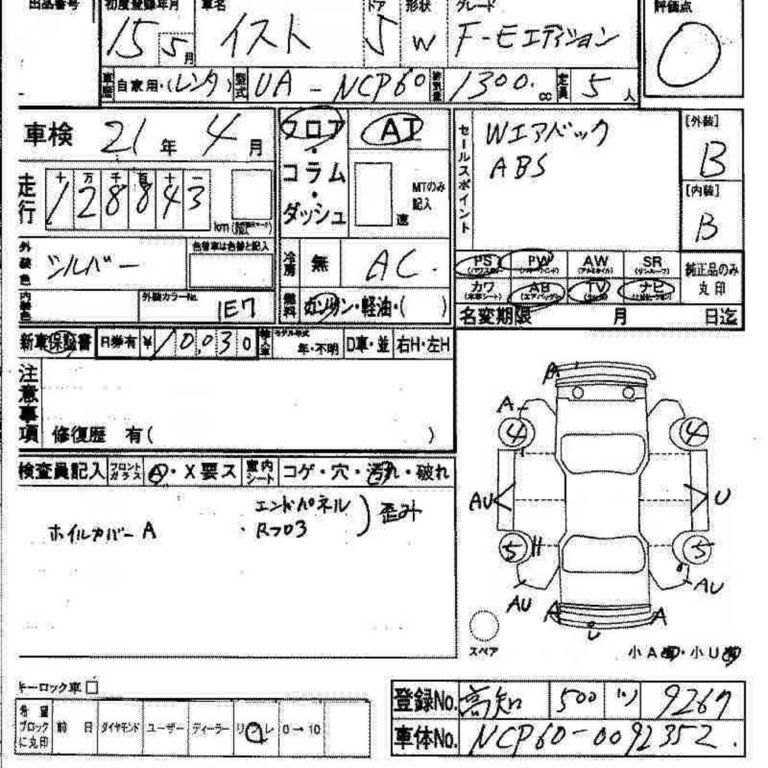 出品番号 初度登録年月 車名 ドア 形状 グレード 評価点
15 5月 イスト 5 W F-Eエディション 0
車歴 自家用・(レンタ) 型式 UA-NCP60 排気量 1300.cc 定員 5人
車検 21年 4月 フロア AT セールスポイント Wエアバック [外装]
・コラム・ MTのみ記入 ABS B
走行 十万千百十一 128843 km ダッシュ 速 [内装] B
外装色 シルバー 色替車は色替と記入 冷房 無 AC. PS PW AW SR 純正品のみ
内装色 外装カラーNo. 1E7 燃料 ガソリン・軽油・( ) カワ AB TV ナビ 丸印
名変期限 月 日迄
新車保証書 R券有 ¥10,030 輸入車 モデル年式 年・不明 D車・並 右H・左H
注意事項 修復歴 有( )
検査員記入 フロントガラス A・X要ス 室内シート コゲ・穴・汚れ・破れ
エンドパネル
ホイルカバー A ・Rフロ3 歪み
A
A 4 4
AU U
5 H 5
AU AU
A A
U
スペア 小A・小U
キーロック車 □
希望ブロックに丸印 前日 ダイヤモンド ユーザー ディーラー リース 0→10
登録No. 高知 500 い 9267
車体No. NCP60-0092352.